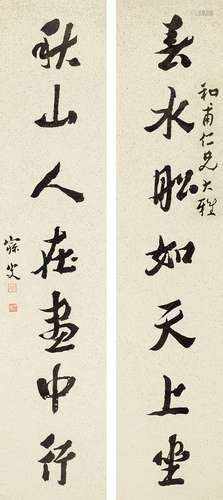 和甫仁兄大雅
春水船如天上坐
秋山人在畫中行
寐叟